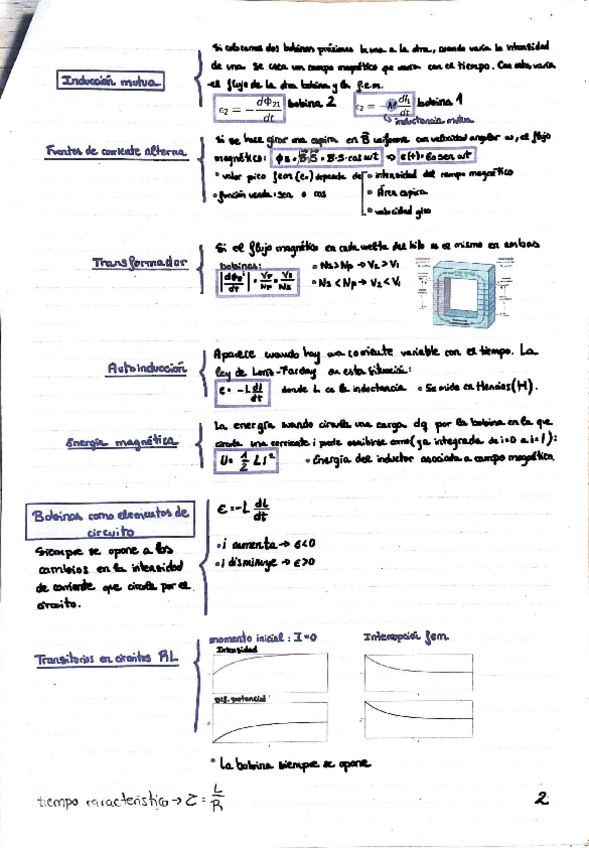 Si colocamos dos bobinas próximas la una a la otra, cuando varía la intensidad
de una se crea un campo magnético que varía con el tiempo. Con esto varía
el flujo de la otra bobina y la f.e.m.
Inducción mutua
ε₂ = - dΦ₂₁/dt bobina 2
ε₂ = -M dI₁/dt bobina 1
inductancia mutua
Fuentes de corriente alterna
Si se hace girar una espira en B uniforme con velocidad angular ω, el flujo
magnético: ΦB = B·S = B·S·cos ωt ⇒ ε(t) = ε₀ sen ωt
• valor pico fem (ε₀) depende de
• intensidad del campo magnético
• función varía: sen o cos
• Área espira
• velocidad giro
Transformador
Si el flujo magnético en cada vuelta del hilo es el mismo en ambas
bobinas:
|dΦB/dt| = VP/NP = VS/NS
• NS > NP → V2 > V1
• NS < NP → V2 < V1
Autoinducción
Aparece cuando hay una corriente variable con el tiempo. La
ley de Lenz-Faraday en esta situación:
ε = -L dI/dt donde L es la inductancia • Se mide en Henrios (H).
Energía magnética
La energía cuando circula una carga dq por la bobina en la que
circula una corriente i puede escribirse como (ya integrada de i=0 a i=I):
U = 1/2 LI² • Energía del inductor asociada a campo magnético.
Bobinas como elementos de
circuito
Siempre se opone a los
cambios en la intensidad
de corriente que circula por el
circuito.
ε = -L dL/dt
• i aumenta → ε<0
• i disminuye → ε>0
Transitorios en circuitos RL
momento inicial: I=0
Interrupción fem.
Intensidad
Dif. potencial
• La bobina siempre se opone
tiempo característico → τ = L/R
2